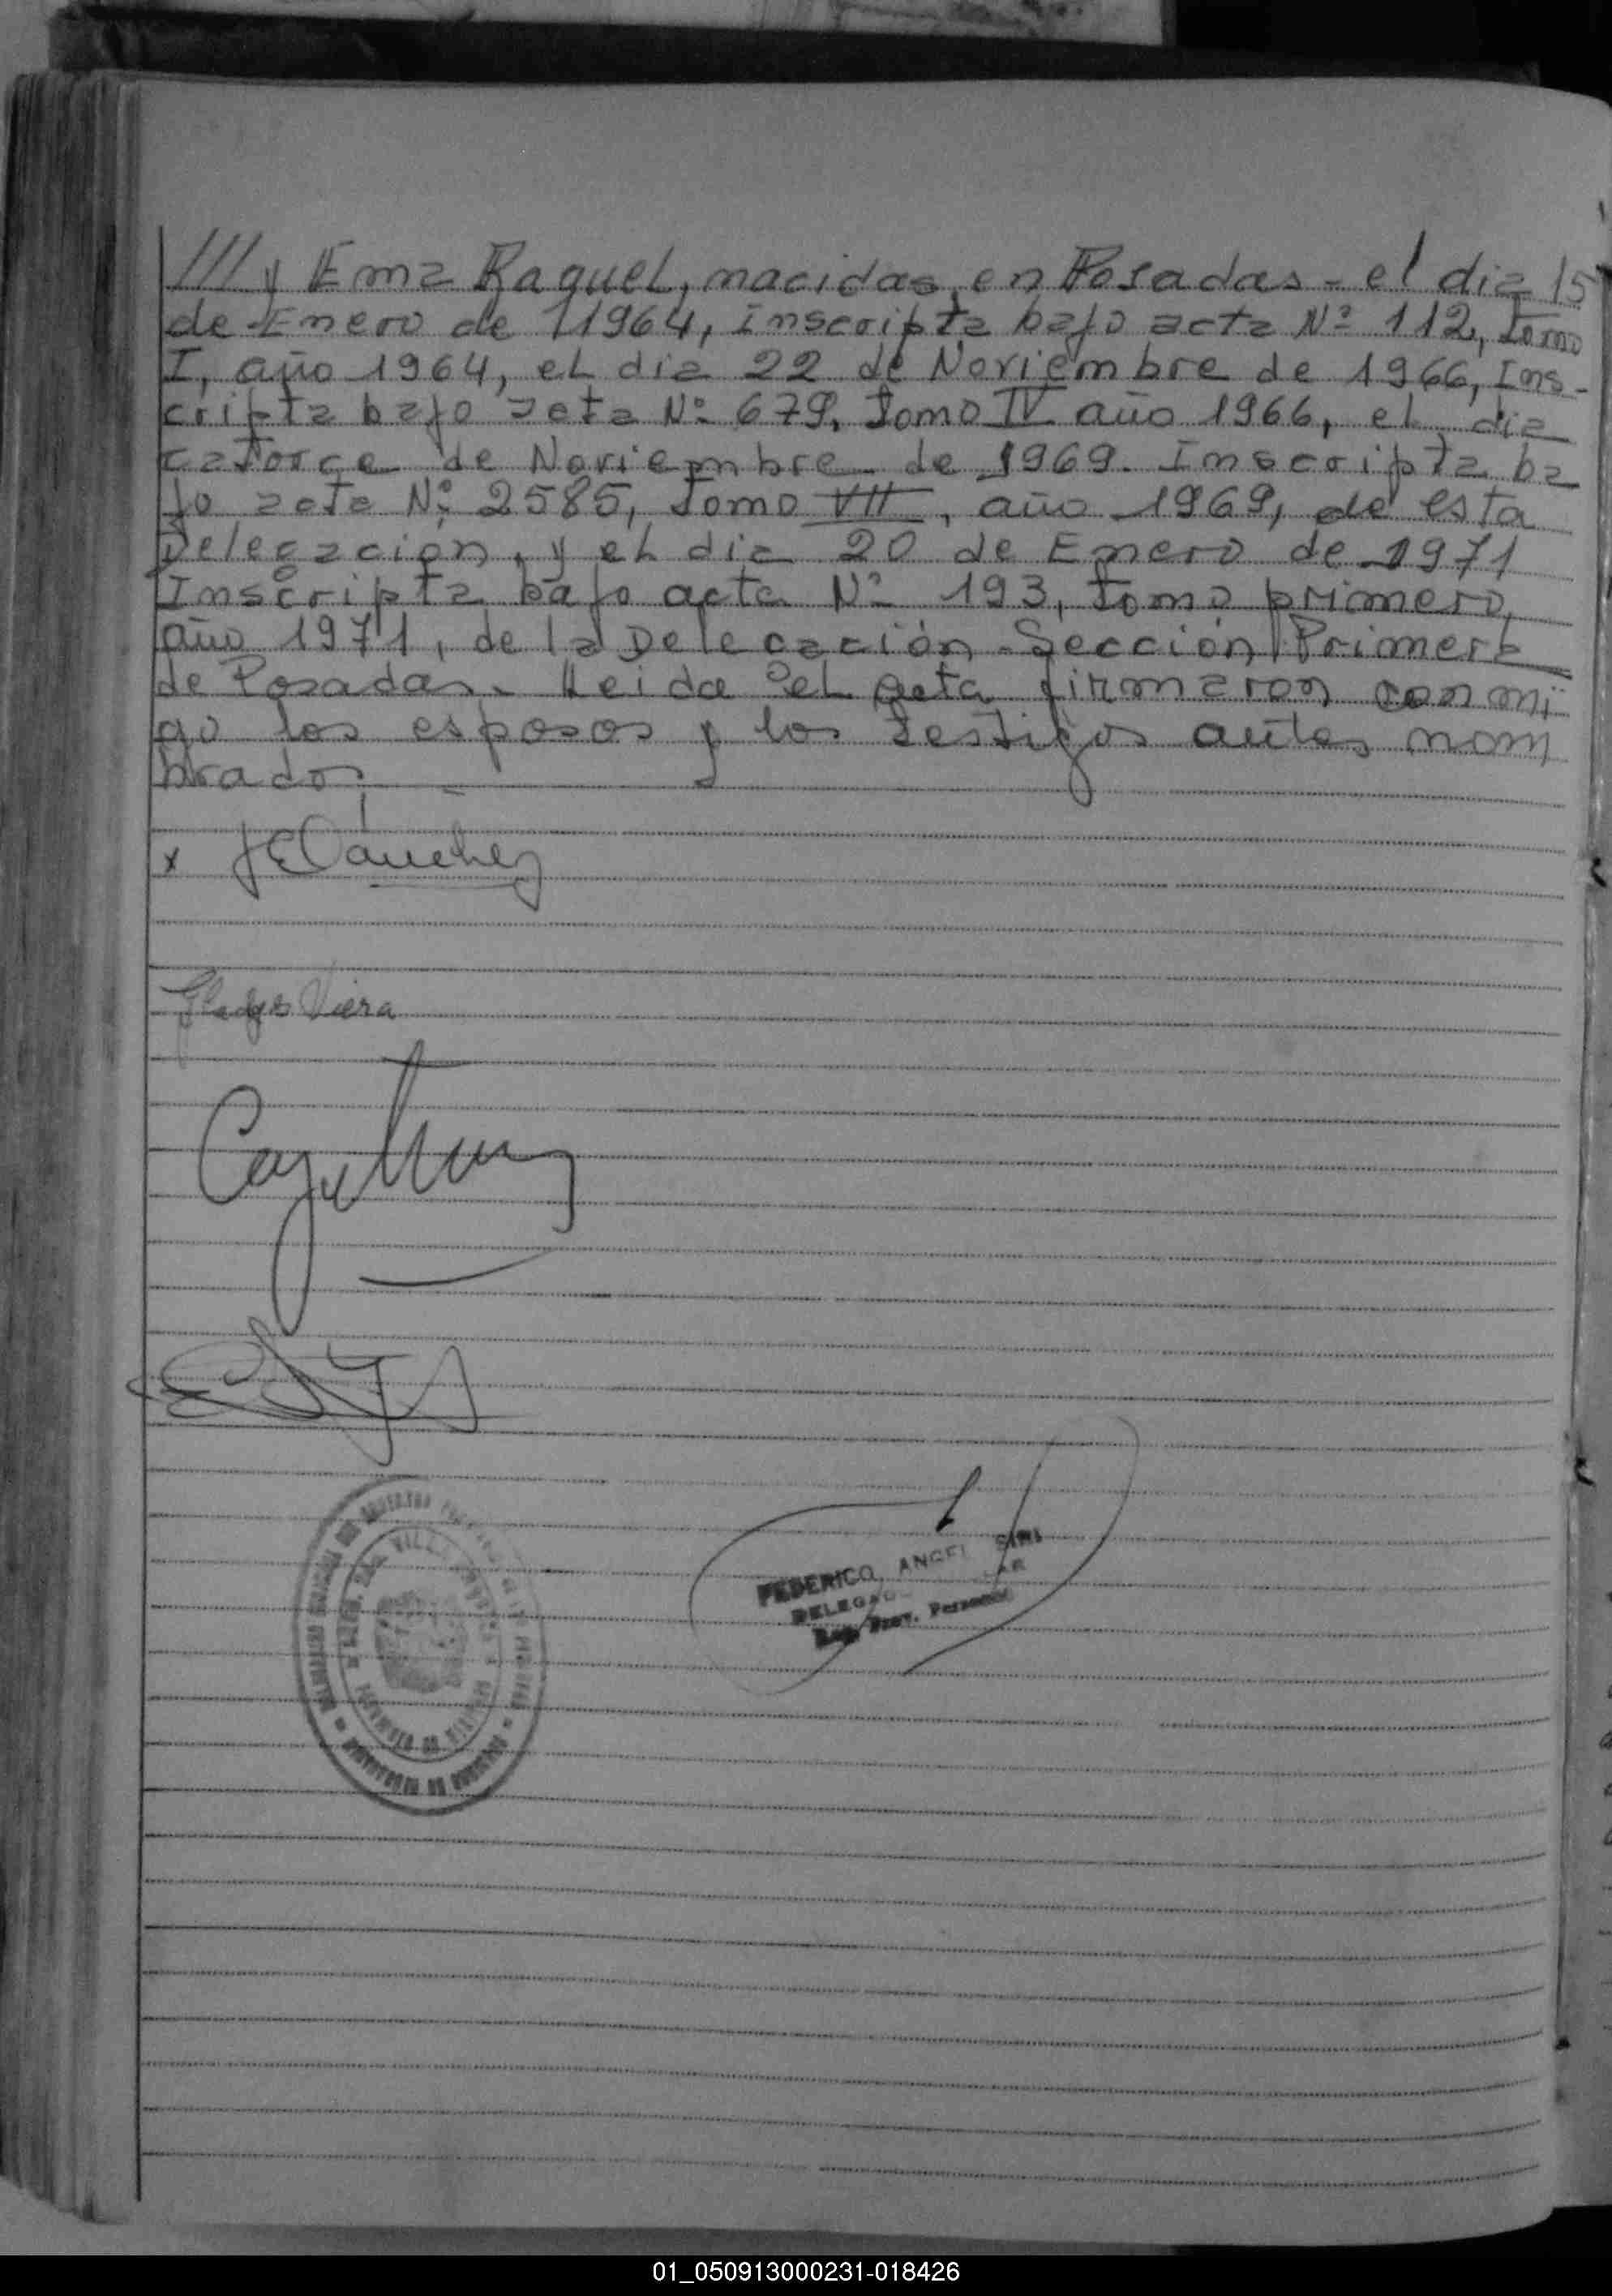 /// y Ema Raquel, nacidas, en Posadas - el dia 15
de Enero de 1964, inscripta bajo acta Nº 112, tomo
I, año 1964, el dia 22 de Noviembre de 1966, Ins-
cripta bajo acta Nº 679, tomo IV año 1966, el dia
catorce de Noviembre de 1969. Inscripta ba
jo acta Nº 2585, tomo VII, año 1969, de esta
Delegacion, y el dia 20 de Enero de 1971
Inscripta bajo acta Nº 193, tomo primero,
año 1971, de la Delegación Sección Primera
de Posadas. Leida el acta firmaron conmi
go los esposos y los testigos antes nom
brados
x JESanchez
Gladys Viera
FEDERICO ANGEL SIRI
DELEGADO
Prov.
01_050913000231-018426